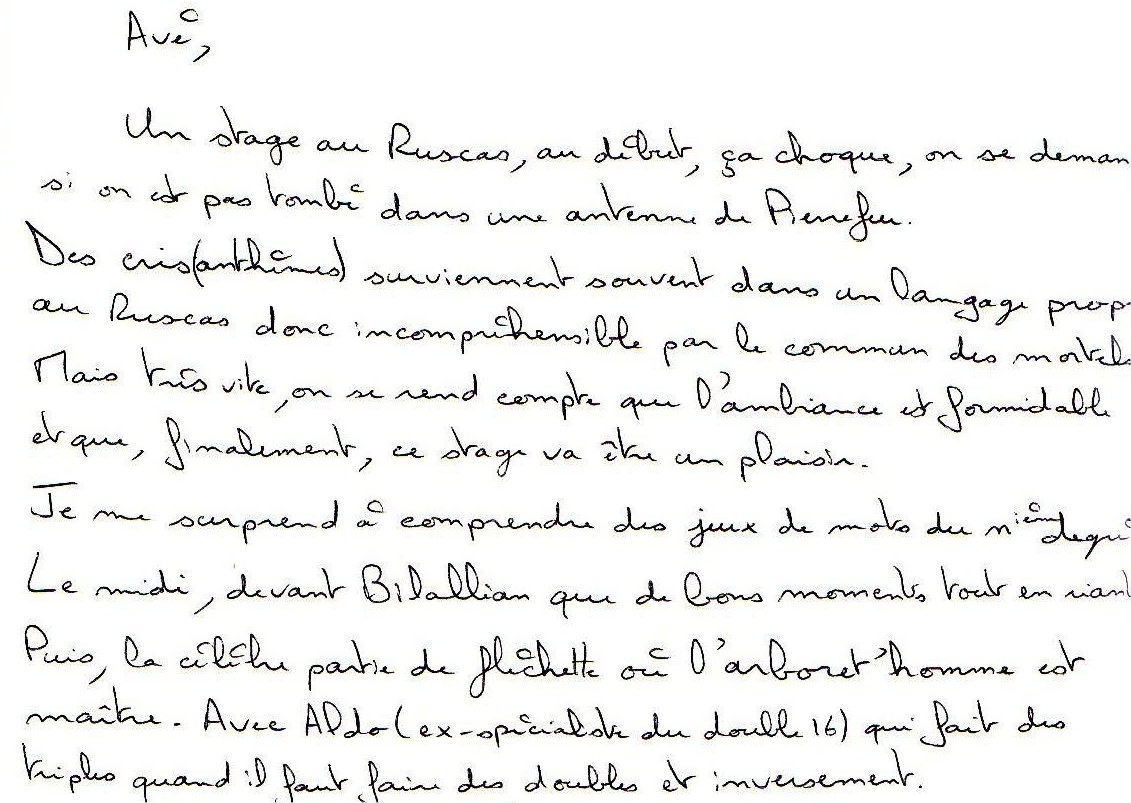 Avé,
Un stage au Ruscas, au début, ça choque, on se deman
si on est pas tombé dans une antenne de Pierrefeu.
Des cris(anthèmes) surviennent souvent dans un langage prop
au Ruscas donc incompréhensible par le commun des mortels
Mais très vite, on se rend compte que l'ambiance est formidable
et que, finalement, ce stage va être un plaisir.
Je me surprend à comprendre des jeux de mots du nième degré
Le midi, devant Bilallian que de bons moments tout en riant
Puis, la célèbre partie de fléchette où l'arboret'homme est
maître. Avec Aldo (ex-spécialiste du double 16) qui fait des
triples quand il faut faire des doubles et inversement.